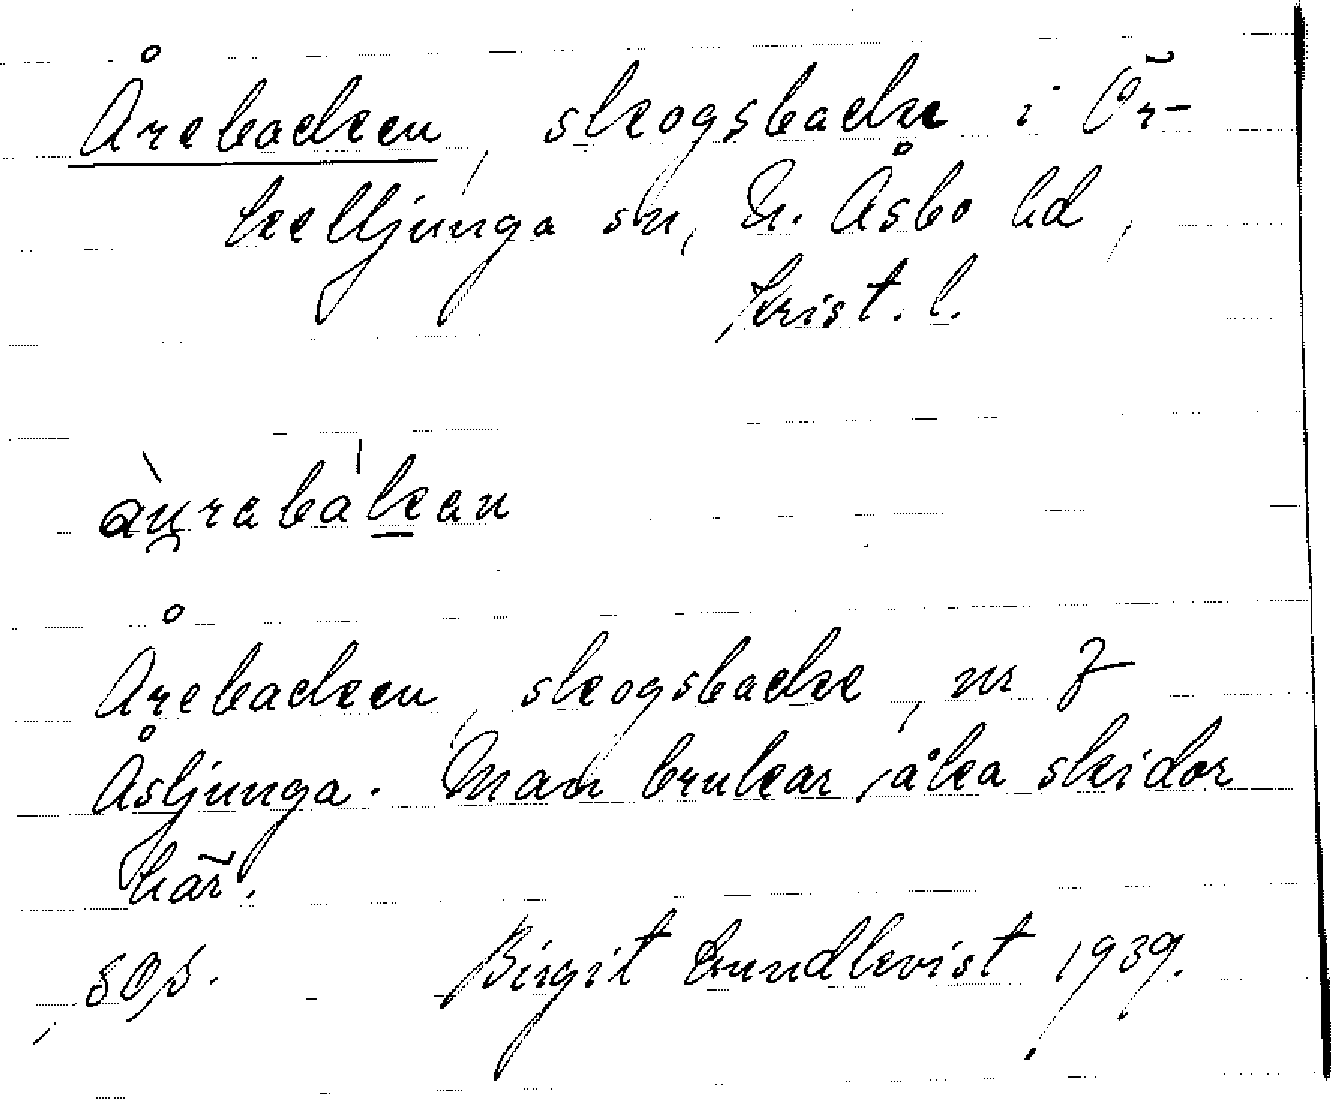 Årebacken, skogsbacke i Ör-
kelljunga sn, N. Åsbo hd,
Krist. l.
Årebacken, skogsbacke, nr 7
Åsljunga. Man brukar åka skidor
här.
Birgit Lundkvist 1939.